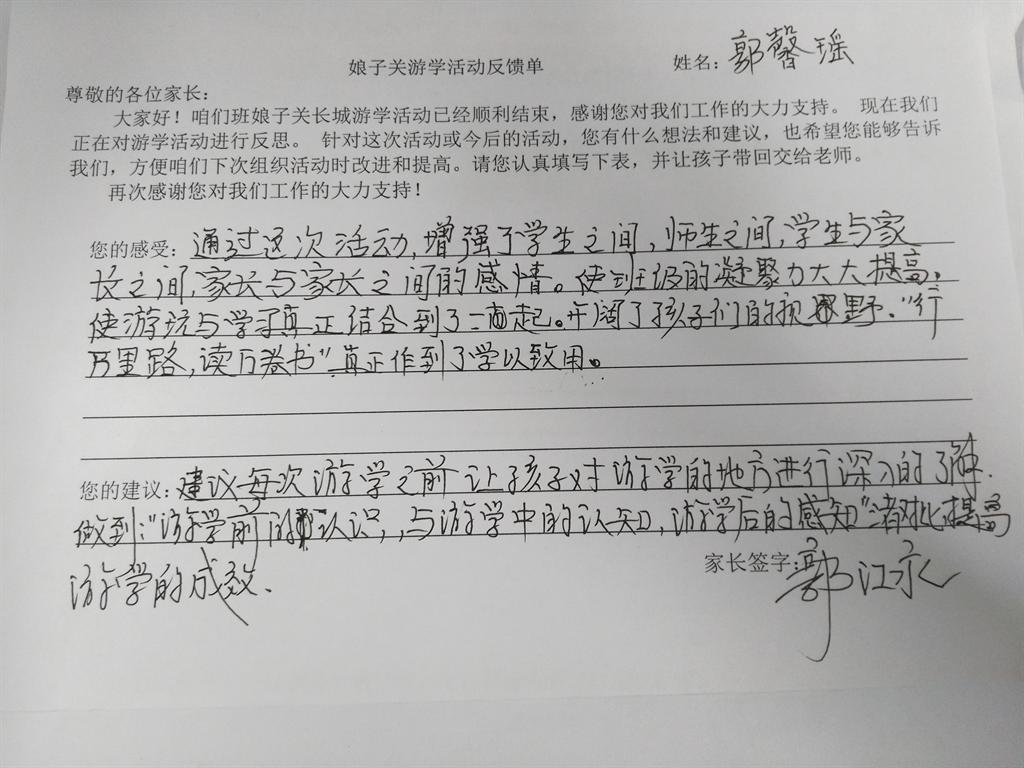 娘子关游学活动反馈单 姓名：郭馨瑶
尊敬的各位家长：
大家好！咱们班娘子关长城游学活动已经顺利结束，感谢您对我们工作的大力支持。 现在我们
正在对游学活动进行反思。 针对这次活动或今后的活动，您有什么想法和建议，也希望您能够告诉
我们，方便咱们下次组织活动时改进和提高。请您认真填写下表，并让孩子带回交给老师。
再次感谢您对我们工作的大力支持！
您的感受：通过这次活动，增强了学生之间，师生之间，学生与家
长之间，家长与家长之间的感情。使班级的凝聚力大大提高。
使游玩与学习真正结合到了一起。开阔了孩子们的视野。"行
万里路，读万卷书"真正作到了学以致用。
您的建议：建议每次游学之前让孩子对游学的地方进行深刻的了解.
做到："游学前的认识，，与游学中的认知，游学后的感知"对比提高
游学的成效.
家长签字：郭江永